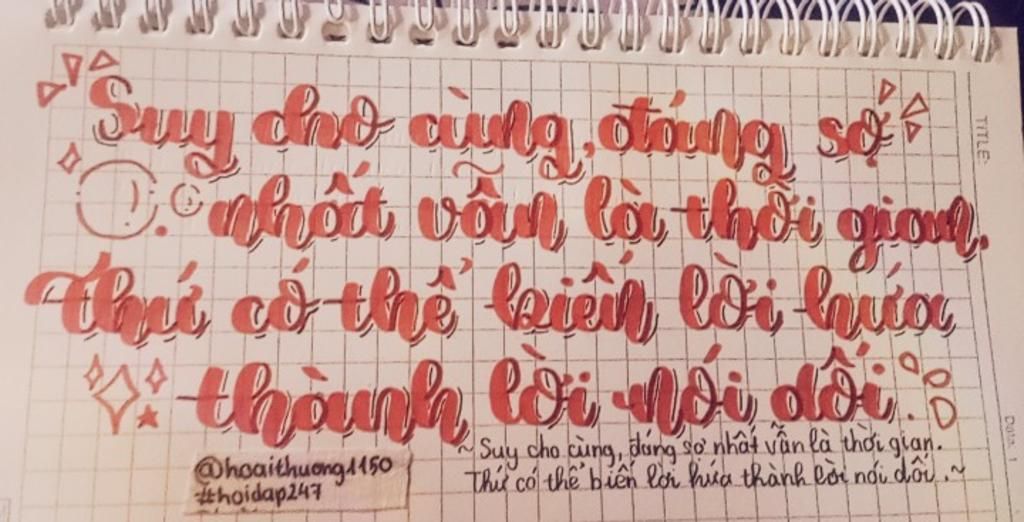 Suy cho cùng, đáng sợ
nhất vẫn là thời gian.
Thứ có thể biến lời hứa
thành lời nói dối.
~ Suy cho cùng, đáng sợ nhất vẫn là thời gian.
Thứ có thể biến lời hứa thành lời nói dối. ~
@hoaithuong1150
#hoidap247
TITLE: